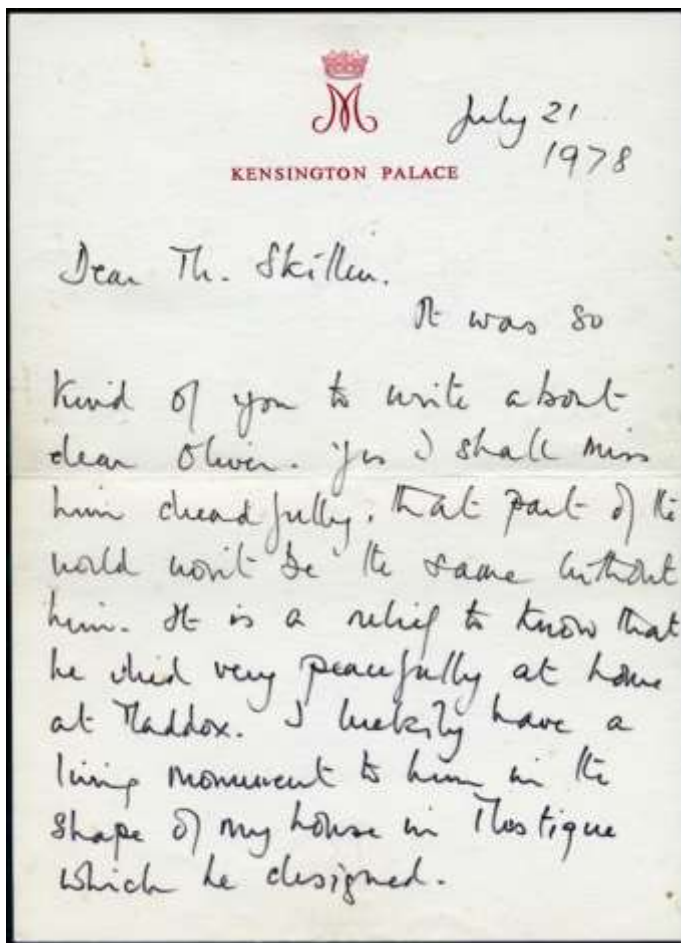 M
July 21
1978
KENSINGTON PALACE
Dear Mr.
It was so
kind of you to write about
dear Oliver. Yes I shall miss
him dreadfully, that part of the
world won't be the same without
him. It is a relief to know that
he died very peacefully at home
at Maddox. I luckily have a
living monument to him in the
shape of my house in Mustique
which he designed.